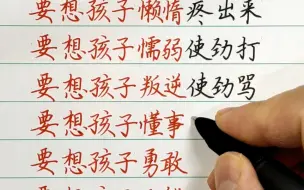 要想孩子懒惰疼出来
要想孩子懦弱使劲打
要想孩子叛逆使劲骂
要想孩子懂事
要想孩子勇敢
要想孩子